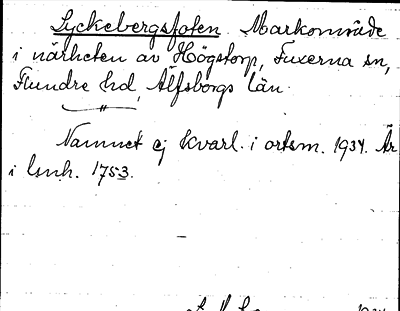 Lyckebergsfoten. Markområde
i närheten av Högstorp, Fuxerna sn,
Flundre hd, Älfsborgs län.
Namnet ej kvarl. i ortsm. 1934. Är
i lsnh. 1753.